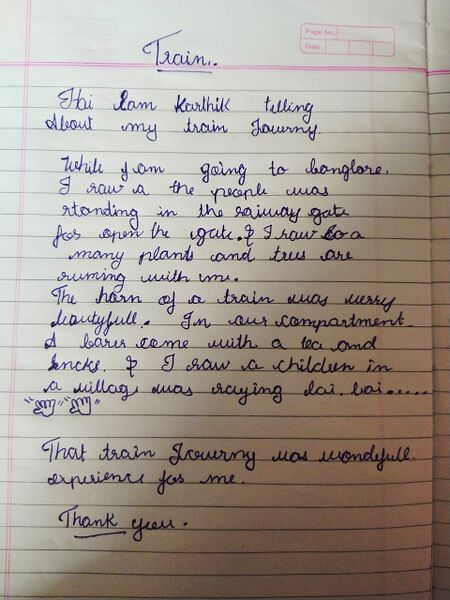 Page No:
Date:
Train..
Hai Iam Karthik telling
About my train Journy.
While I am going to banglore.
I saw a the people was
standing in the raiway gate
for open the gate. & I saw so a
many plants and tres are
running with me.
The horn of a train was verry
beautyfull. In our compartment
A barer come with a tea and
sncks. & I saw a children in
a village was saying bai. bai.....
That train Journy was wondefull
experience for me.
Thank you.